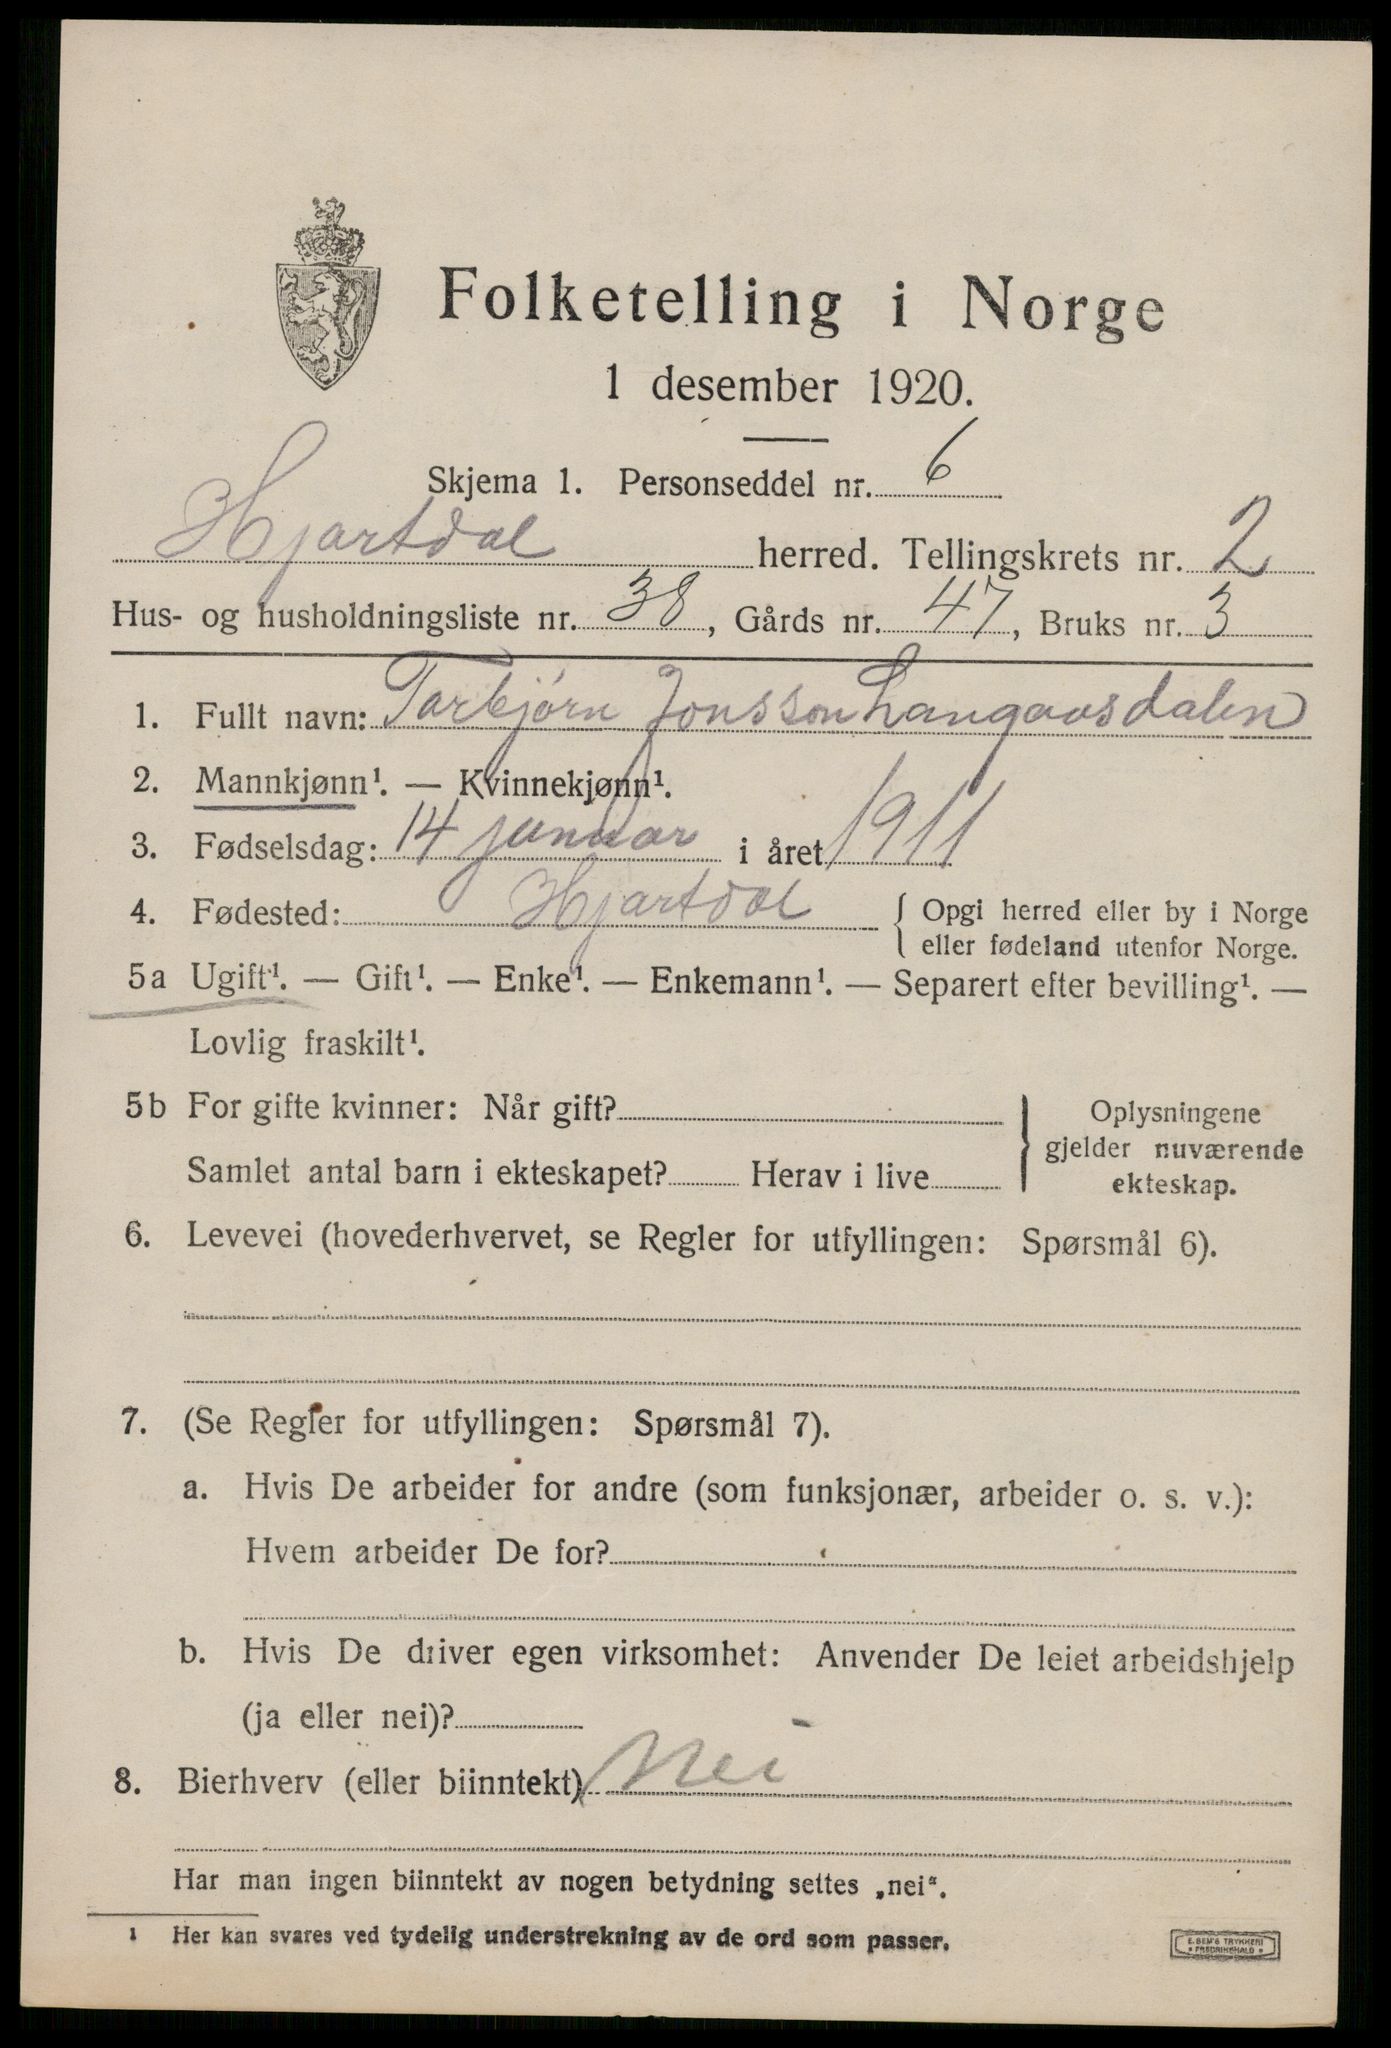 Folketelling i Norge
1 desember 1920.
Skjema 1. Personseddel nr. 6
Hjartdal herred. Tellingskrets nr. 2
Hus- og husholdningsliste nr. 38, Gårds nr. 47, Bruks nr. 3
1. Fullt navn: Tarbjørn Jonsson Langaasdalen
2. Mannkjønn¹. — Kvinnekjønn¹.
3. Fødselsdag: 14 januar i året 1911
4. Fødested: Hjartdal { Opgi herred eller by i Norge
eller fødeland utenfor Norge.
5a Ugift¹. — Gift¹. — Enke¹. — Enkemann¹. — Separert efter bevilling¹. —
Lovlig fraskilt¹.
5b For gifte kvinner: Når gift?
Samlet antal barn i ekteskapet? Herav i live
} Oplysningene
gjelder nuværende
ekteskap.
6. Levevei (hovederhvervet, se Regler for utfyllingen: Spørsmål 6).
7. (Se Regler for utfyllingen: Spørsmål 7).
a. Hvis De arbeider for andre (som funksjonær, arbeider o. s. v.):
Hvem arbeider De for?
b. Hvis De driver egen virksomhet: Anvender De leiet arbeidshjelp
(ja eller nei)?
8. Bierhverv (eller biinntekt) Nei
Har man ingen biinntekt av nogen betydning settes „nei“.
1 Her kan svares ved tydelig understrekning av de ord som passer.
E. SEM'S TRYKKERI
• FREDRIKSHALD •